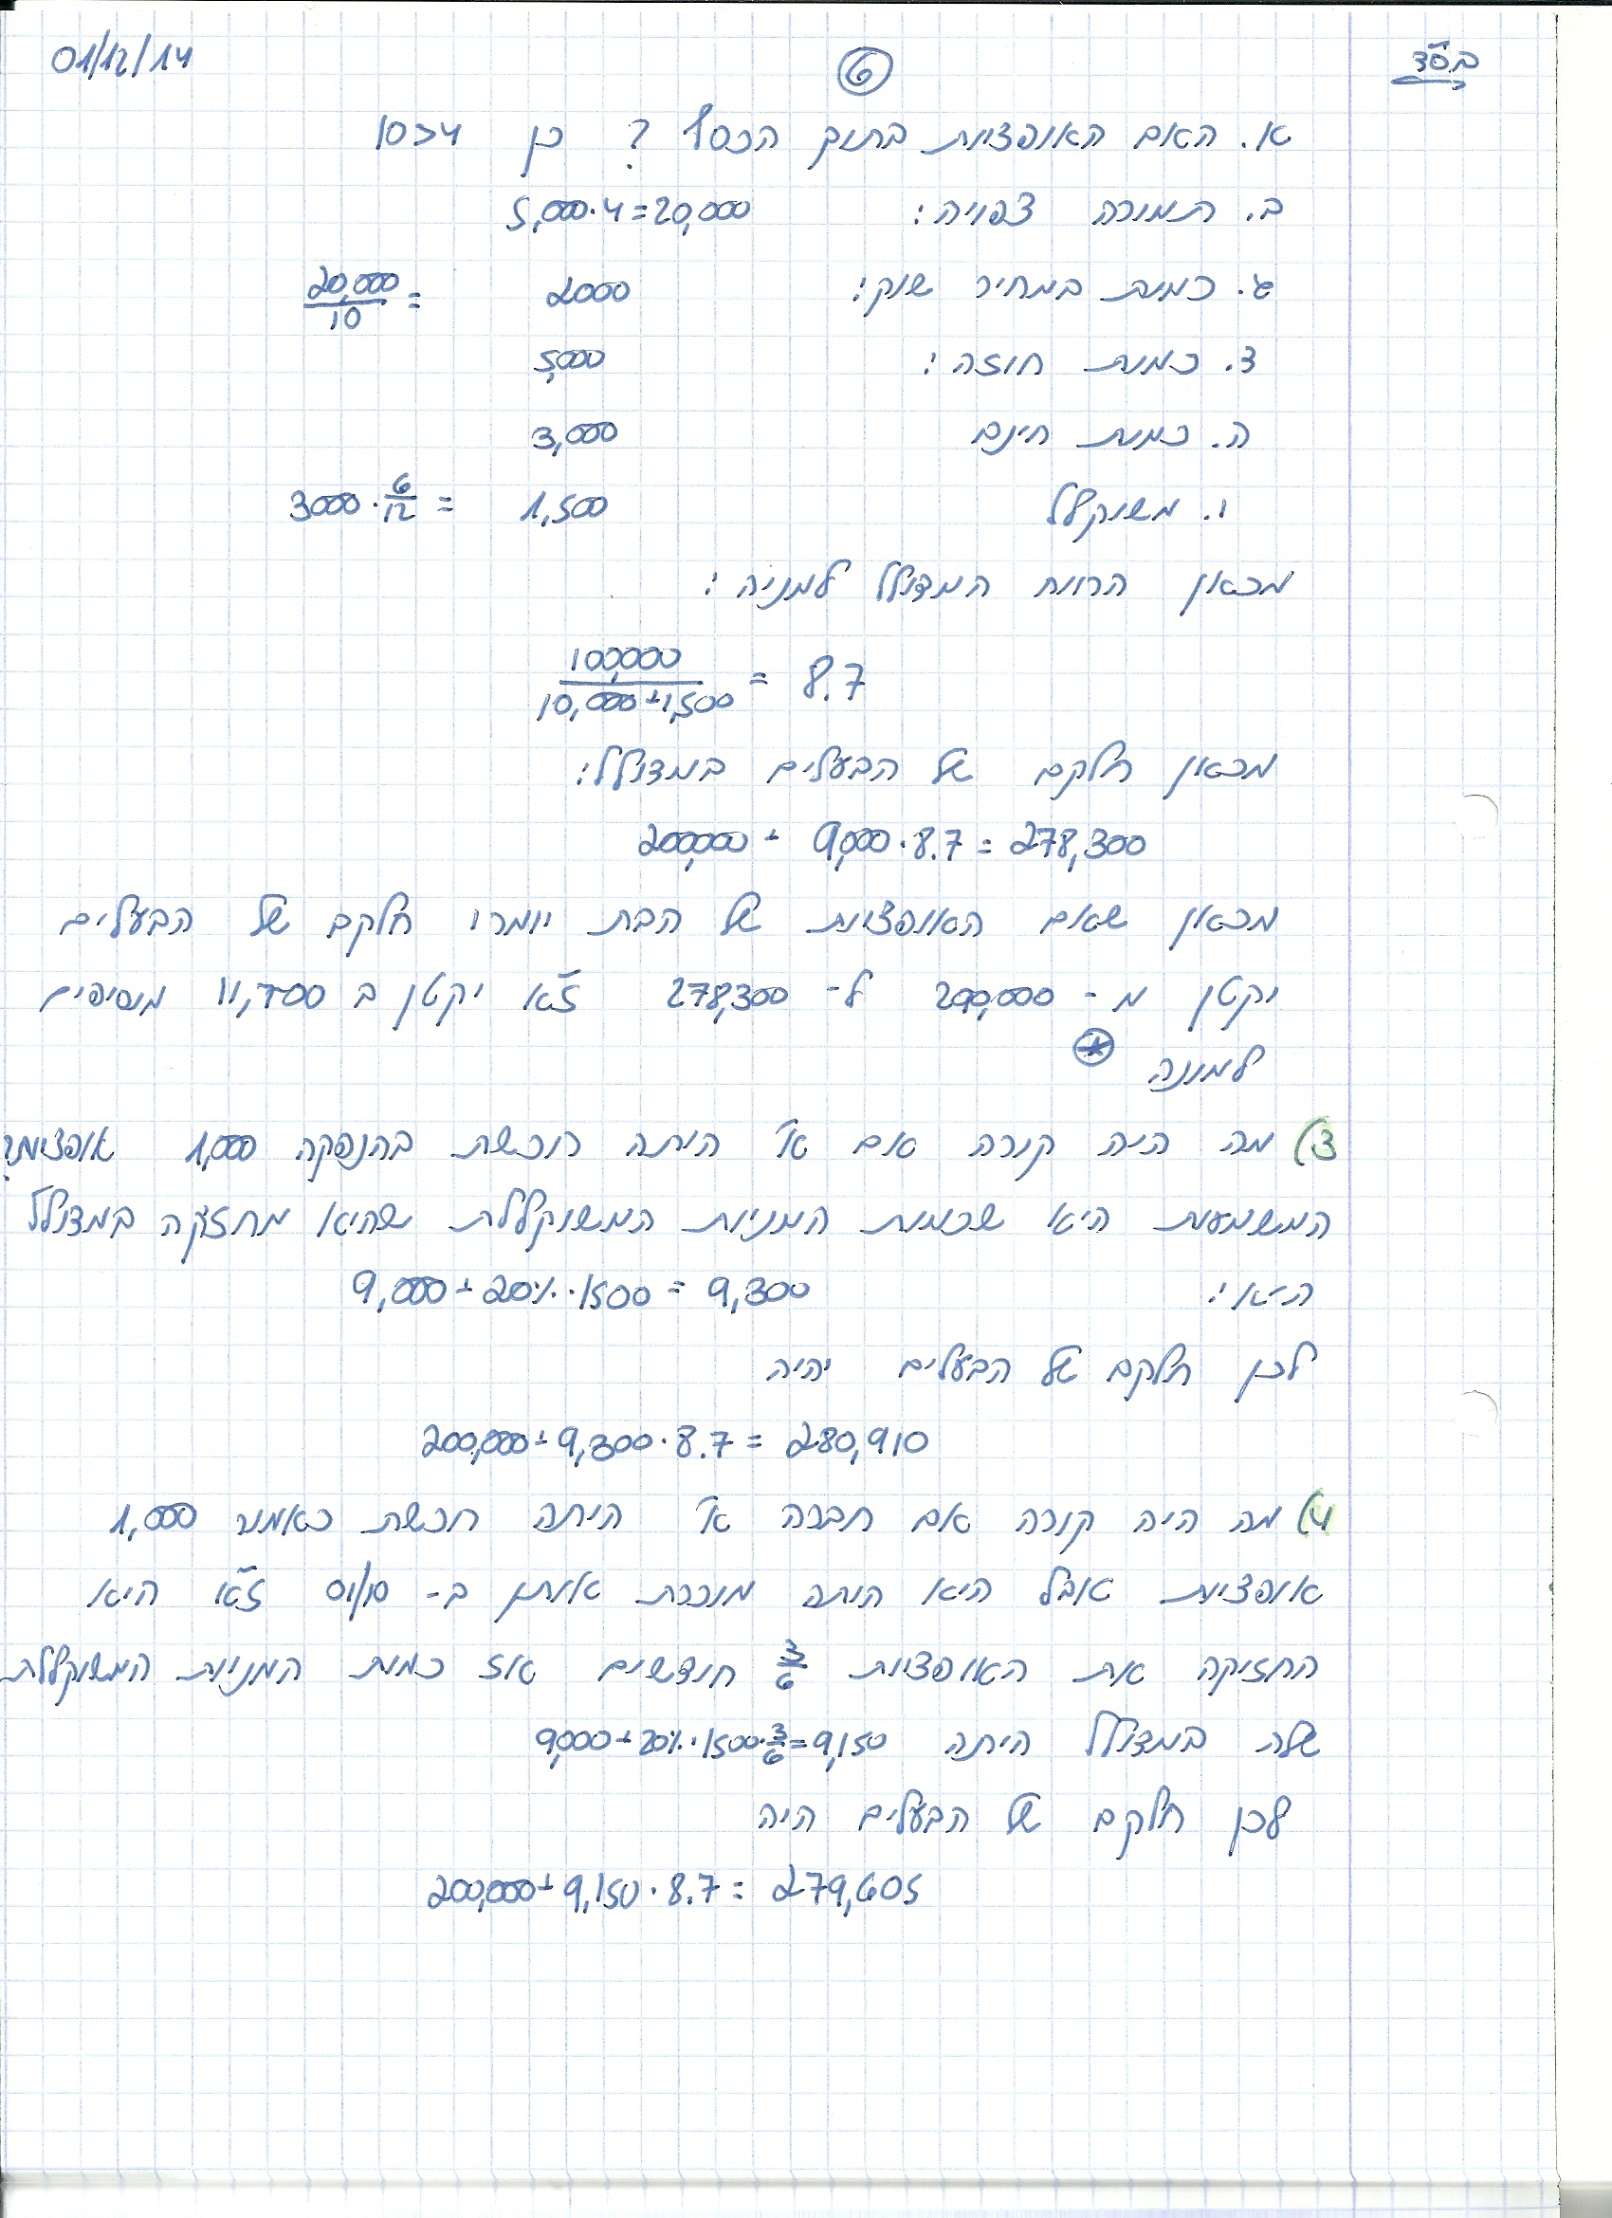 בס"ד
6
01/12/14
א. האם האופציות בתוך הכסף? כן 10>4
ב. תמורה צפויה: 5,000·4=20,000
ג. כמות במחיר שוק: 2000 = 20,000/10
ד. כמות חוזה: 5,000
ה. כמות חינם 3,000
ו. משוקלל 1,500 = 3000·6/12
מכאן הרווח המדולל למניה:
100,000/(10,000+1,500) = 8.7
מכאן חלקם של הבעלים במדולל:
200,000 + 9,000·8.7 = 278,300
מכאן שאם האופציות של הבת יומרו חלקם של הבעלים
יקטן מ- 290,000 ל- 278,300 ז"א יקטן ב 11,700 מוסיפים
למונה ⊛
3) מה היה קורה אם א' היתה רוכשת בהנפקה 1,000 אופציות?
המשמעות היא שכמות המניות המשוקללת שהיא מחזיקה במדולל
היא: 9,000+20%·1500 = 9,300
לכן חלקם של הבעלים יהיה
200,000+9,300·8.7 = 280,910
4) מה היה קורה אם חברה א' היתה רוכשת כאמור 1,000
אופציות אבל היא היתה מוכרת אותן ב- 01/10 ז"א היא
החזיקה את האופציות 3/6 חודשים אז כמות המניות המשוקללת
שלה במדולל היתה 9,000+20%·1500·3/6=9,150
לכן חלקם של הבעלים היה
200,000+9,150·8.7 = 279,605